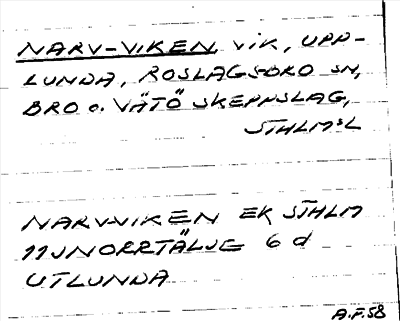 NARV-VIKEN, VIK, UPP-
LUNDA, ROSLAGSBRO SN,
BRO O. VÄTÖ SKEPPSLAG,
STHLMS L
NARVVIKEN EK STHLM
11J NORRTÄLJE 6 d
UTLUNDA
A.F.58